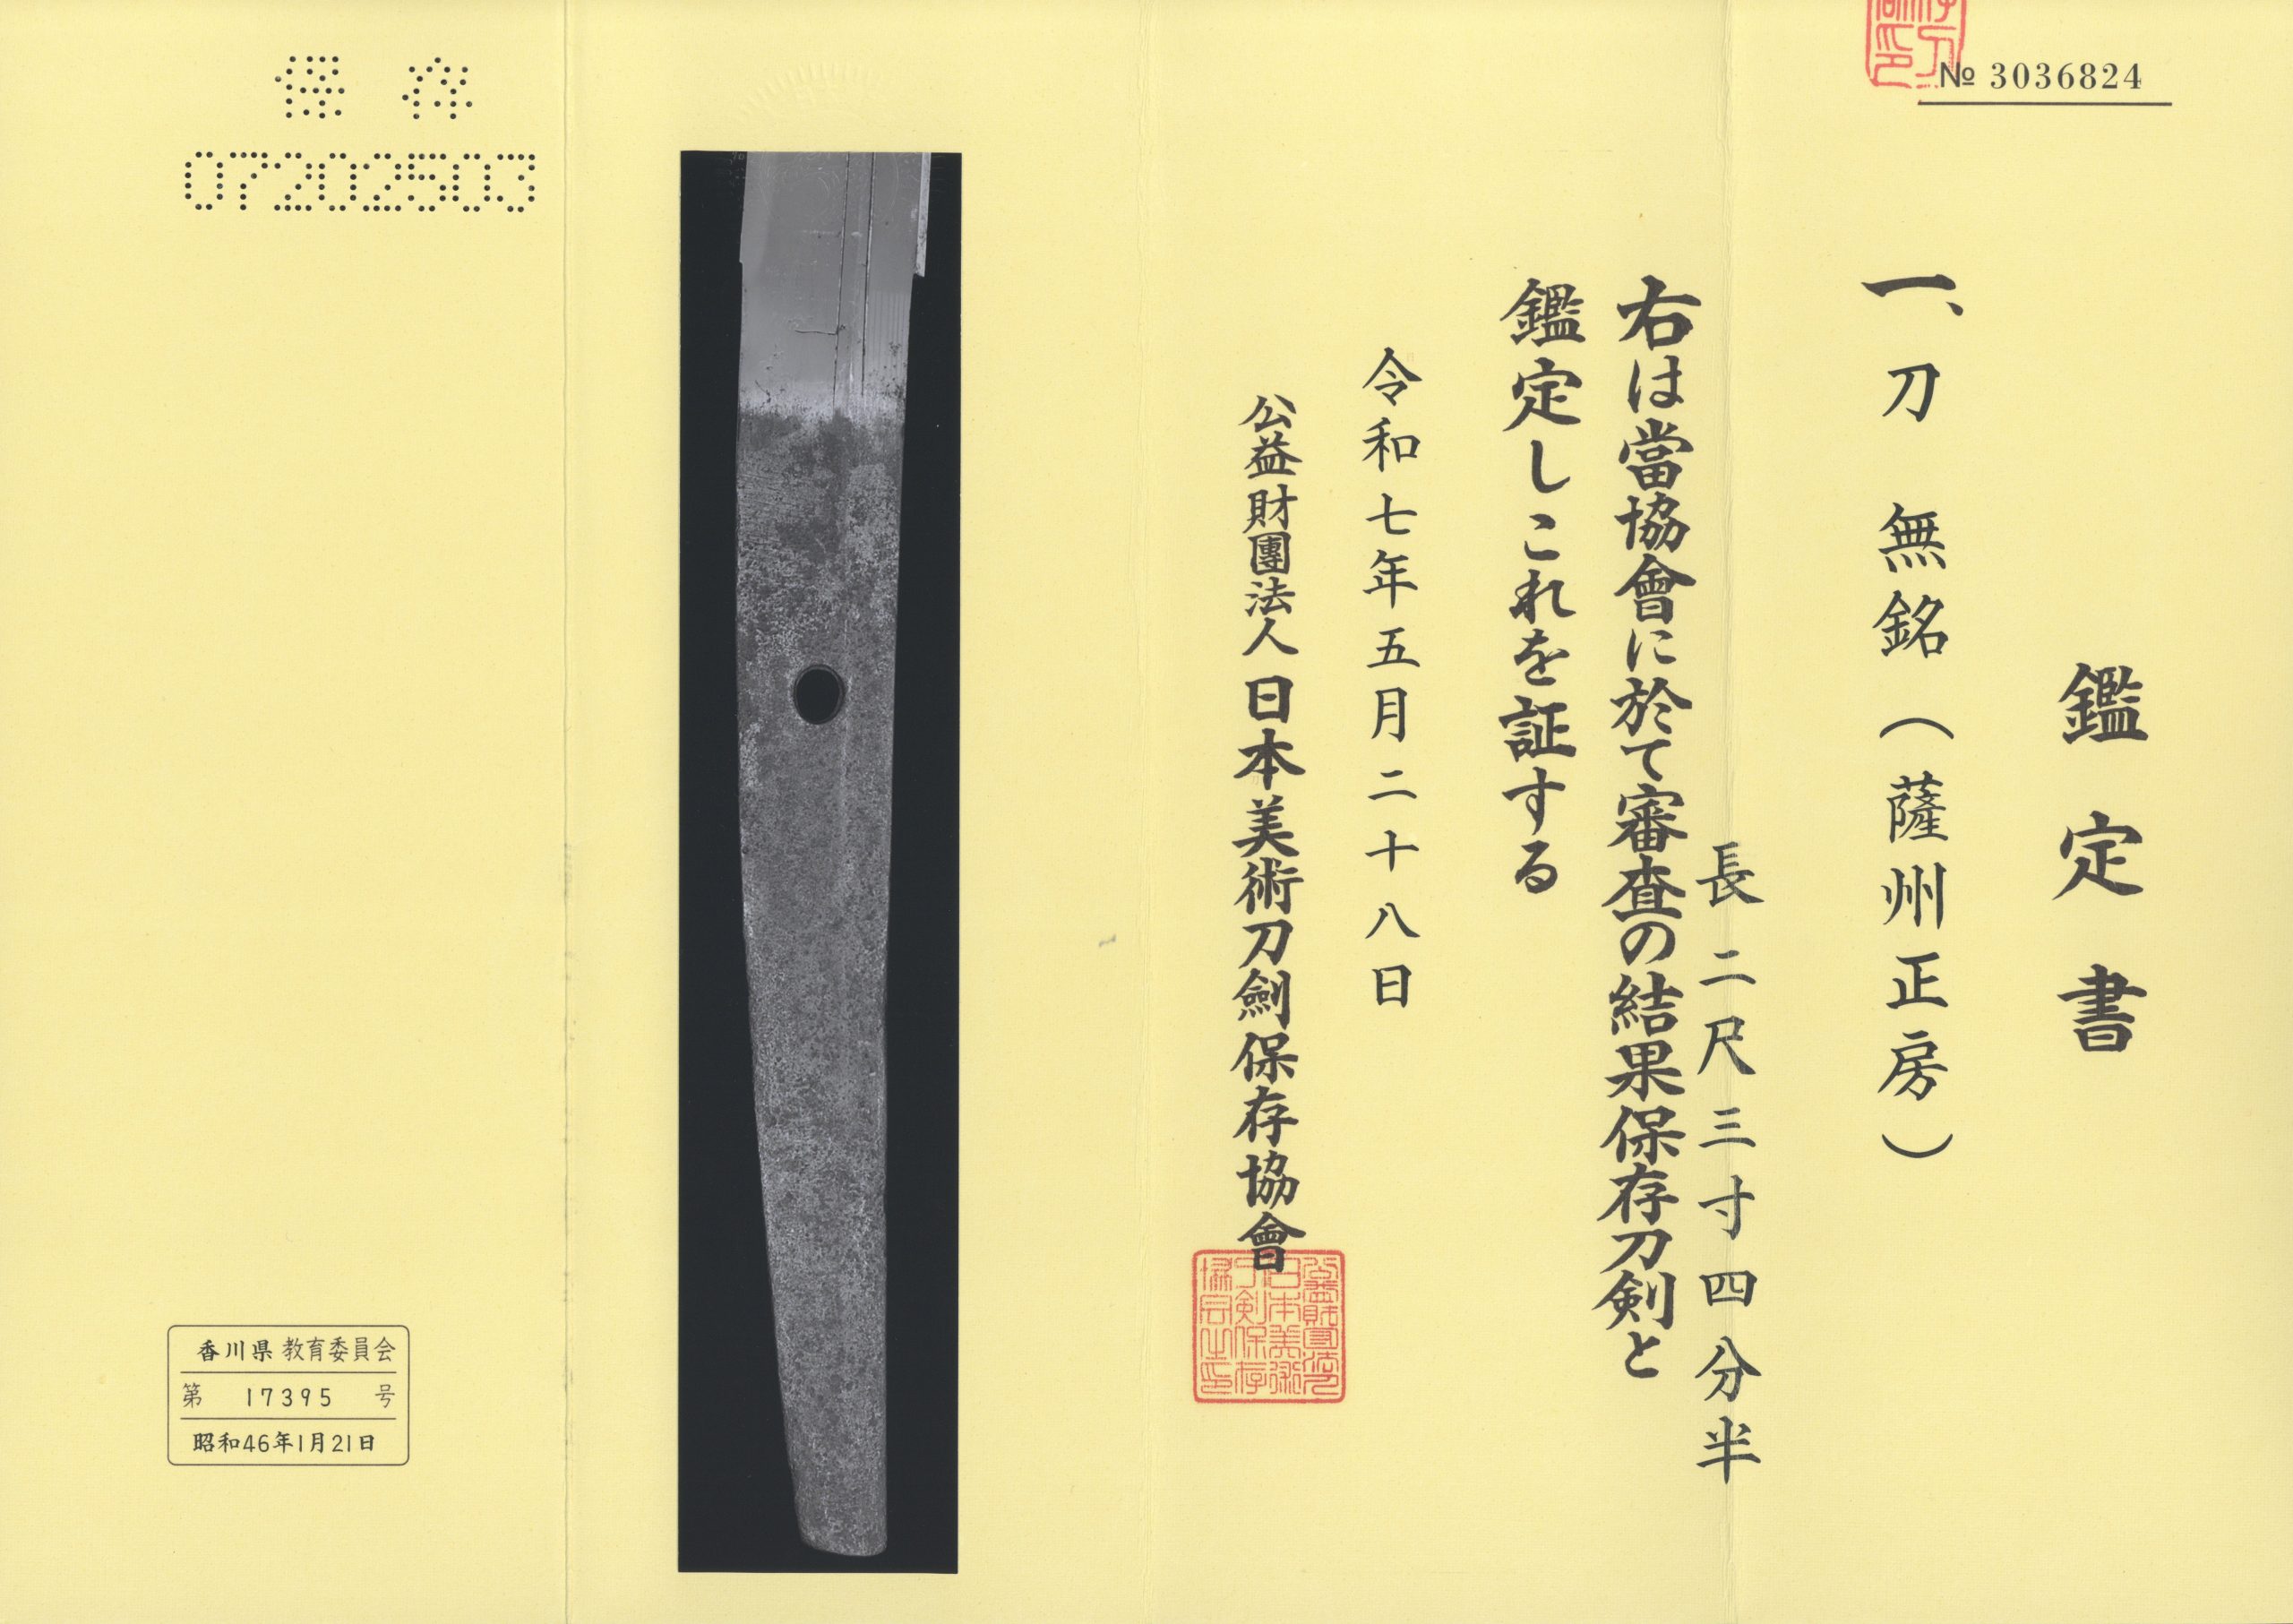 № 3036824
鑑定書
一、刀 無銘(薩州正房)
長二尺三寸四分半
右は當協會に於て審査の結果保存刀剣と
鑑定しこれを証する
令和七年五月二十八日
公益財團法人 日本美術刀劍保存協會
保存
07202503
香川県教育委員会
第 17395 号
昭和46年1月21日